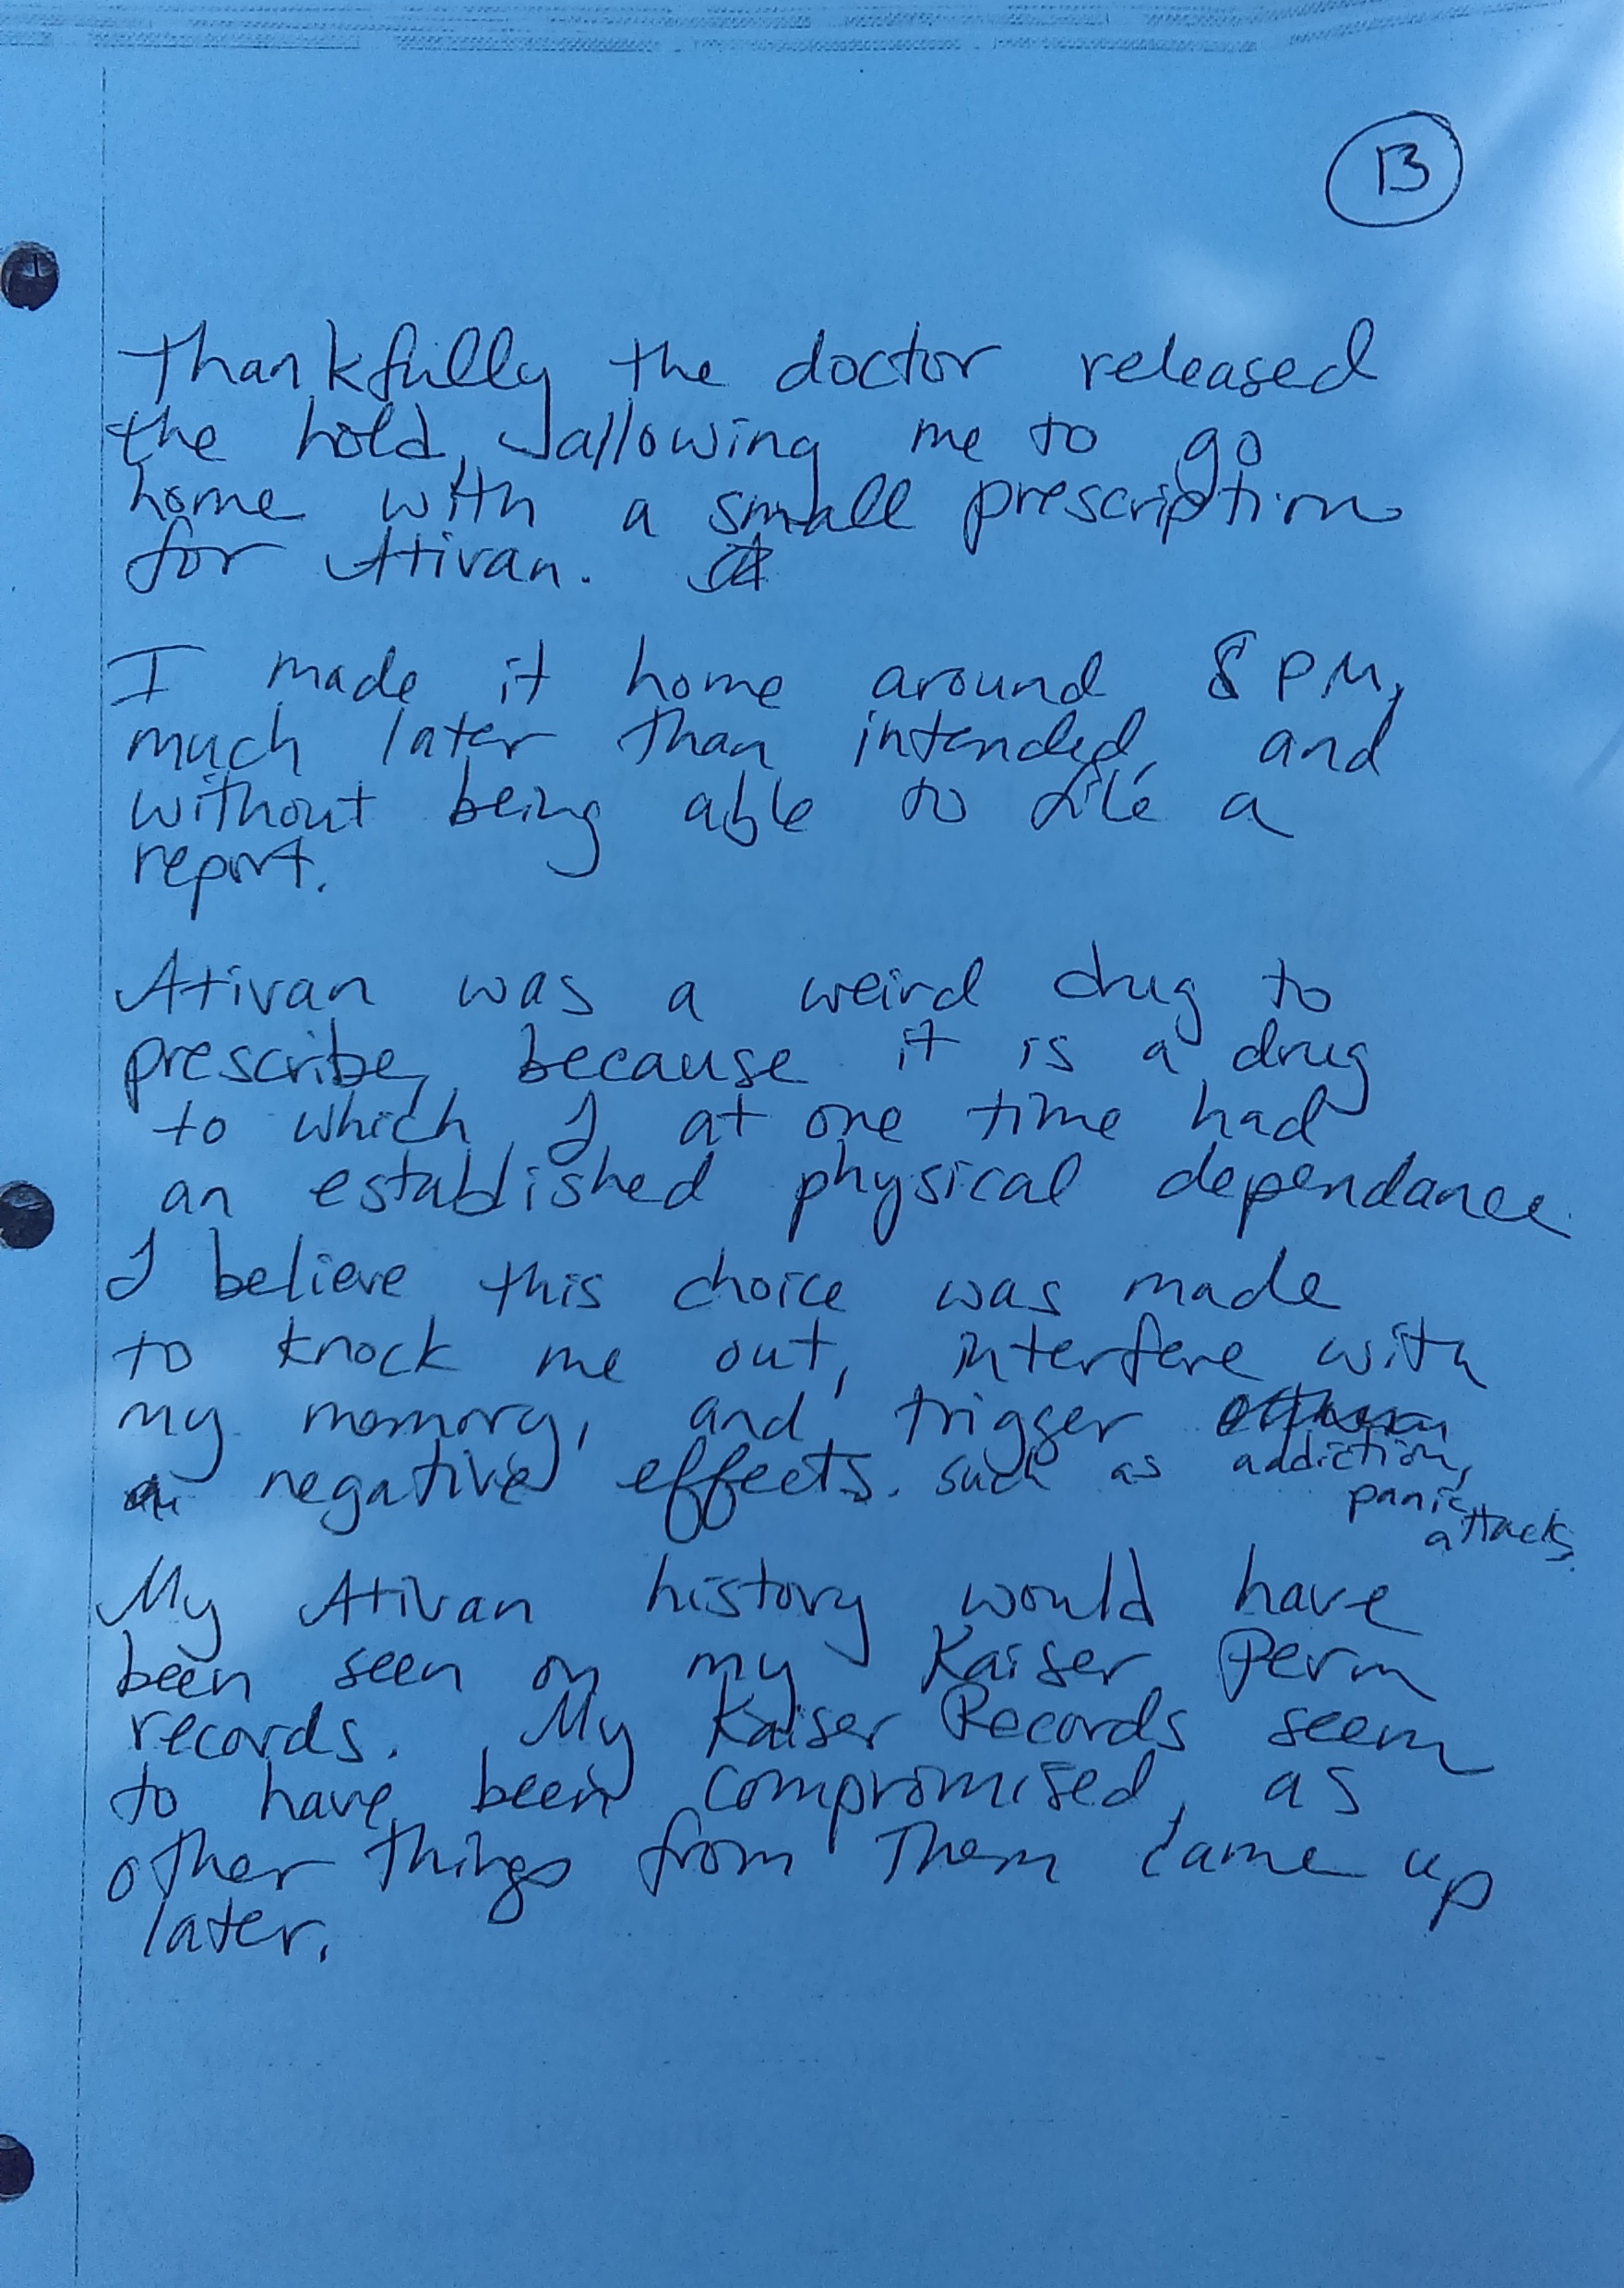 13
Thankfully the doctor released
the hold, allowing me to go
home with a small prescription
for Ativan.
I made it home around 8 PM,
much later than intended, and
without being able to file a
report.
Ativan was a weird drug to
prescribe, because it is a drug
to which I at one time had
an established physical dependance
I believe this choice was made
to knock me out, interfere with
my memory, and trigger
negative effects. such as addiction,
panic
attacks.
My Ativan history would have
been seen on my Kaiser Perm
records. My Kaiser Records seem
to have been compromised, as
other things from them came up
later.